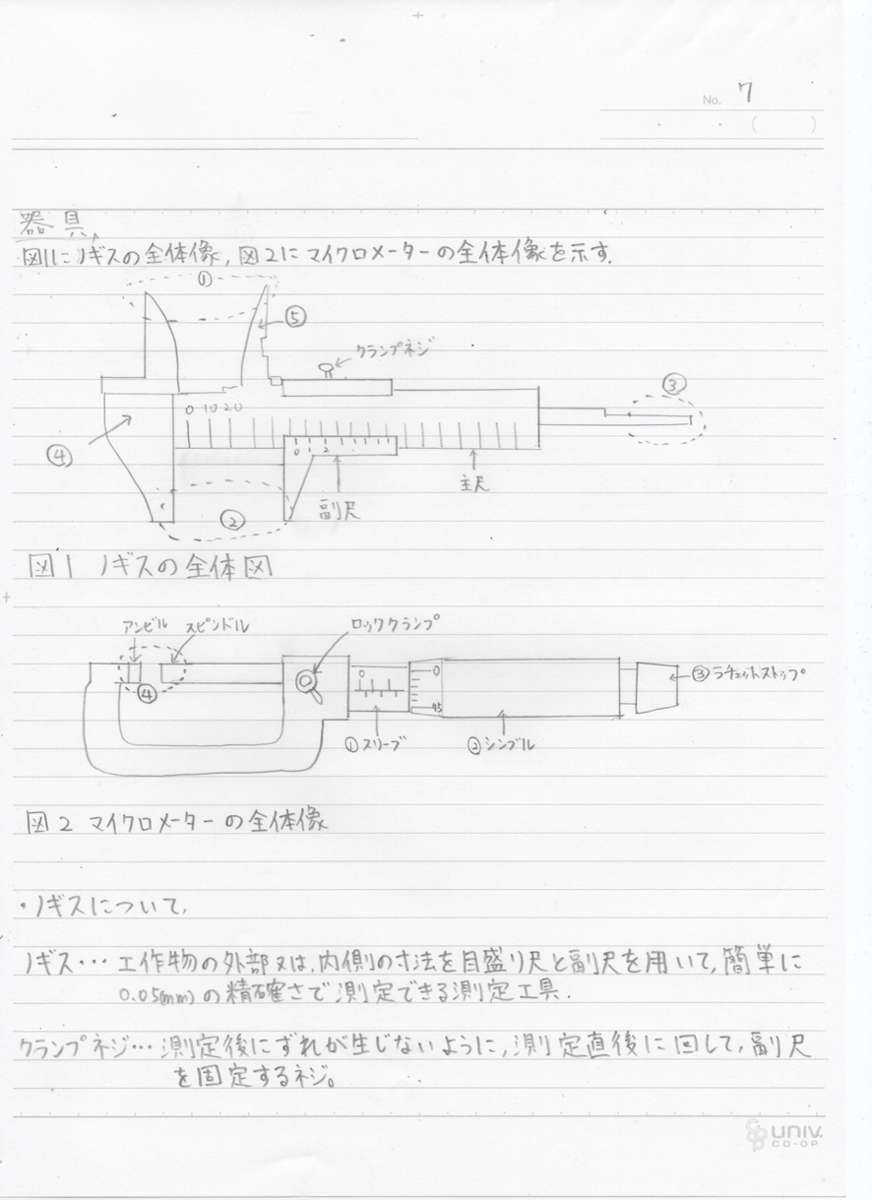 No. 7
( )
器具
図1にノギスの全体像,図2にマイクロメーターの全体像を示す.
①
⑤
クランプネジ
③
0 10 20
④
0 2
主尺
②
副尺
図1 ノギスの全体図
アンビル スピンドル ロッククランプ
0 0
③ラチェットストップ
④
45
①スリーブ ②シンブル
図2 マイクロメーターの全体像
・ノギスについて,
ノギス… 工作物の外部又は,内側の寸法を目盛り尺と副尺を用いて,簡単に
0.05(mm)の精確さで測定できる測定工具.
クランプネジ… 測定後にずれが生じないように,測定直後に回して,副尺
を固定するネジ。
UNIV.
CO-OP